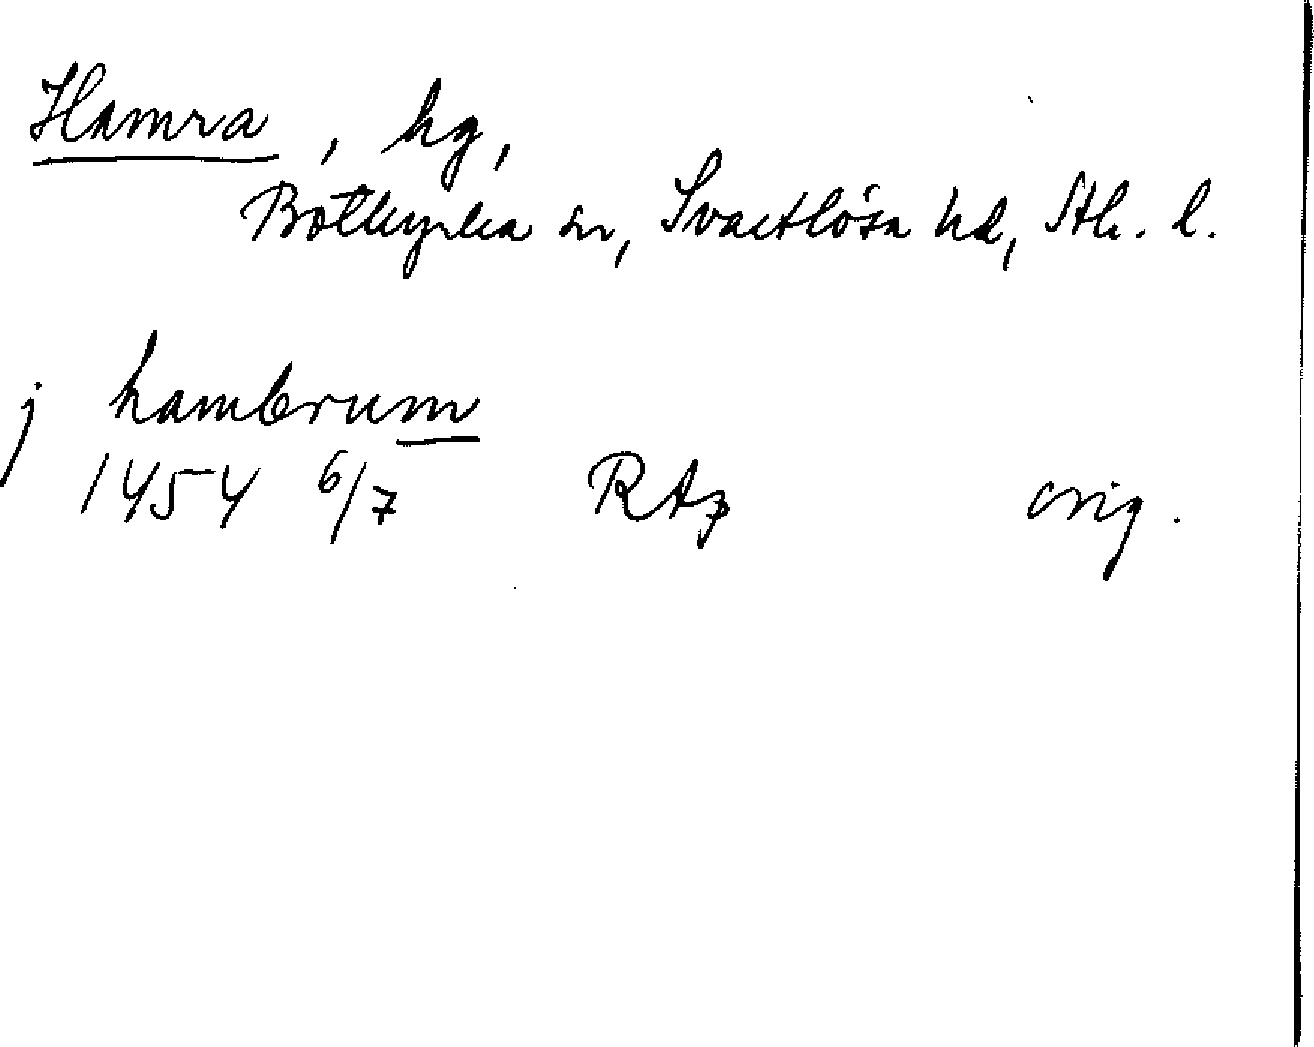 Hamra, hg,
Botkyrka sn, Svartlösa hd, Sth. l.
j hambrum
1454 6/7 RAp orig.